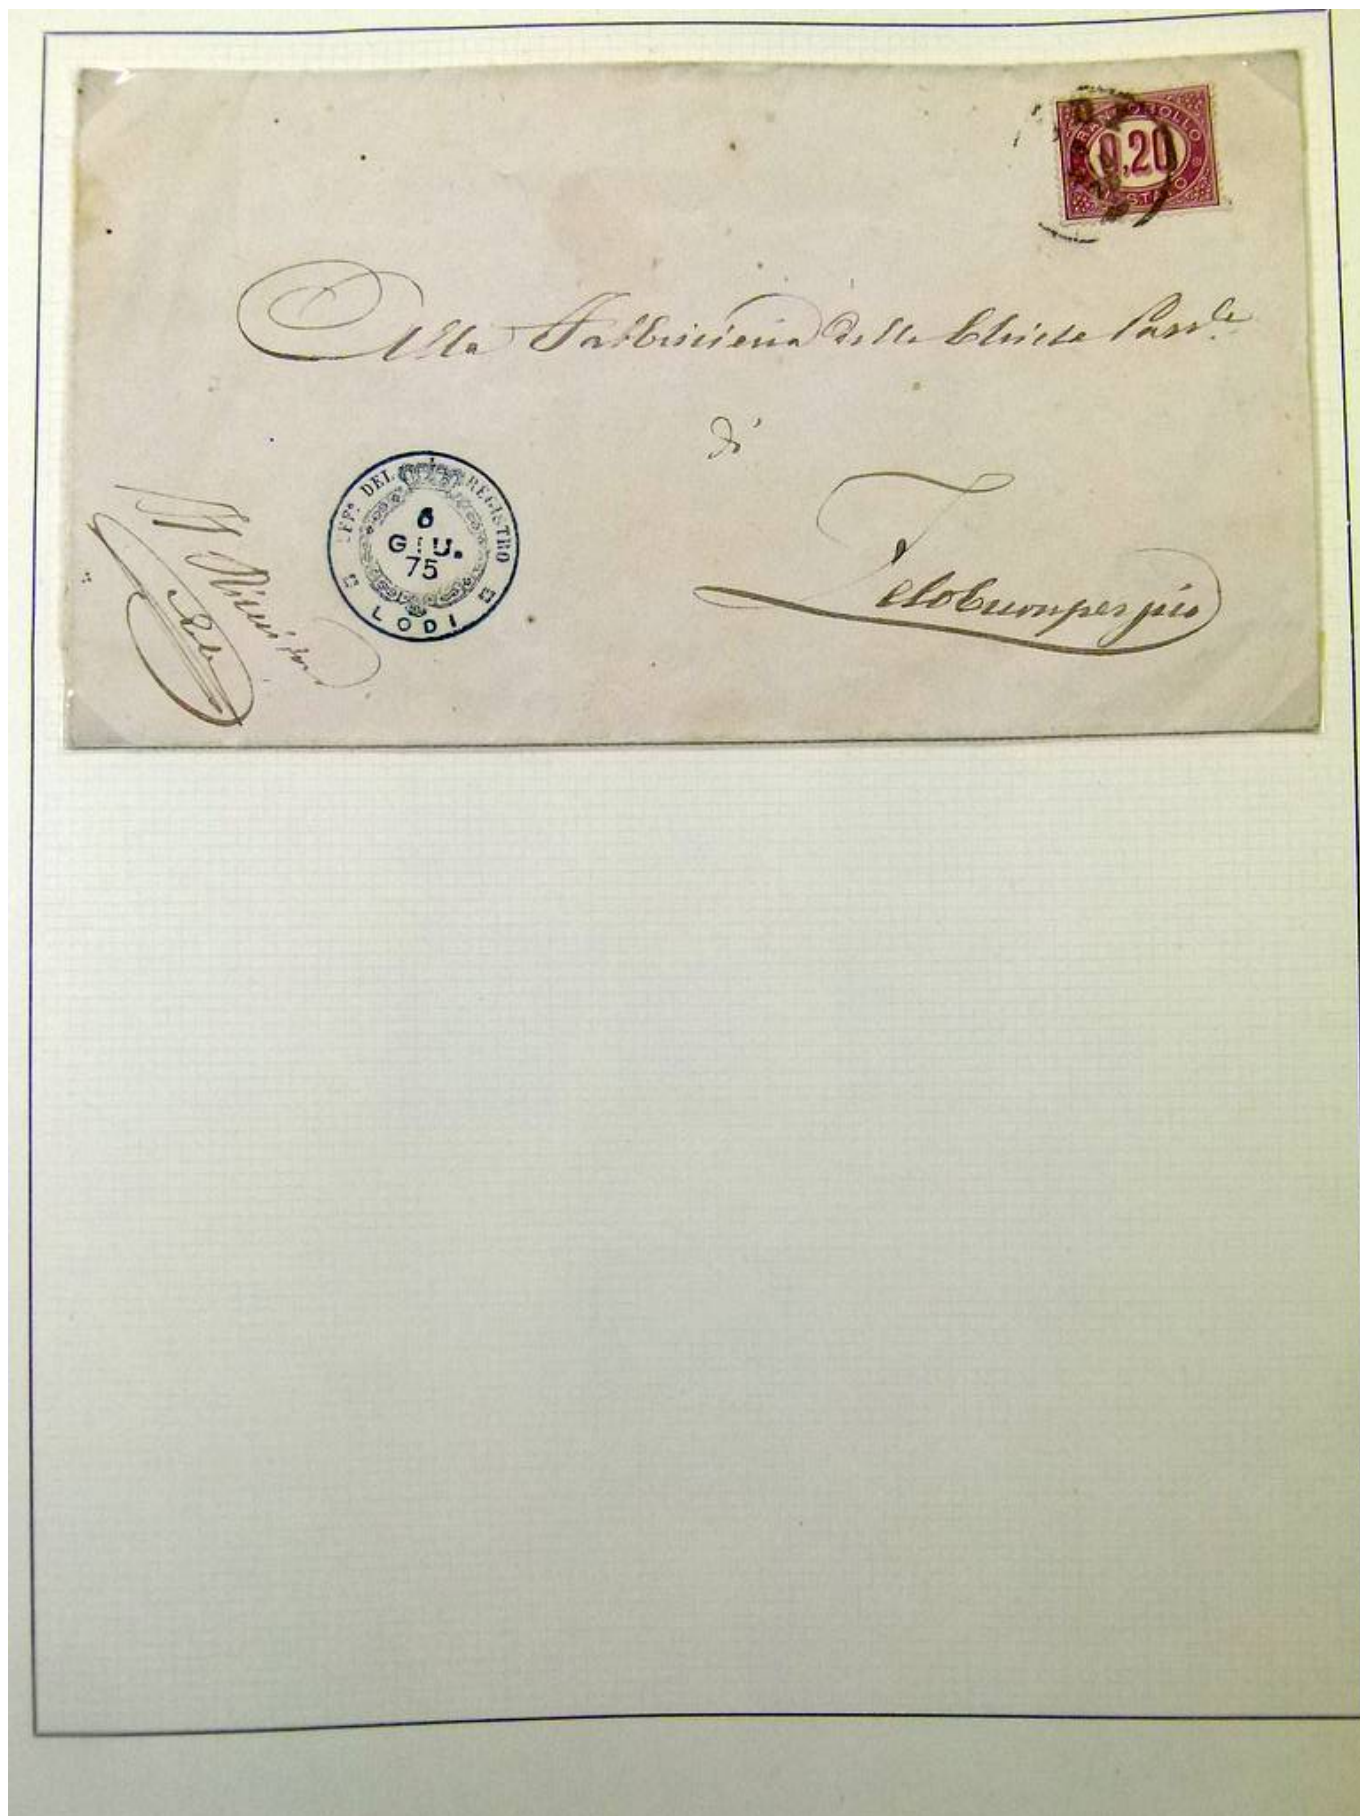 FRANCOBOLLO
0,20
DI STATO
Alla Fabbriceria della Chiesa Parr.le
di
Zelobuonpersico
UFF.o DEL REGISTRO
6
GIU.
75
LODI
Il